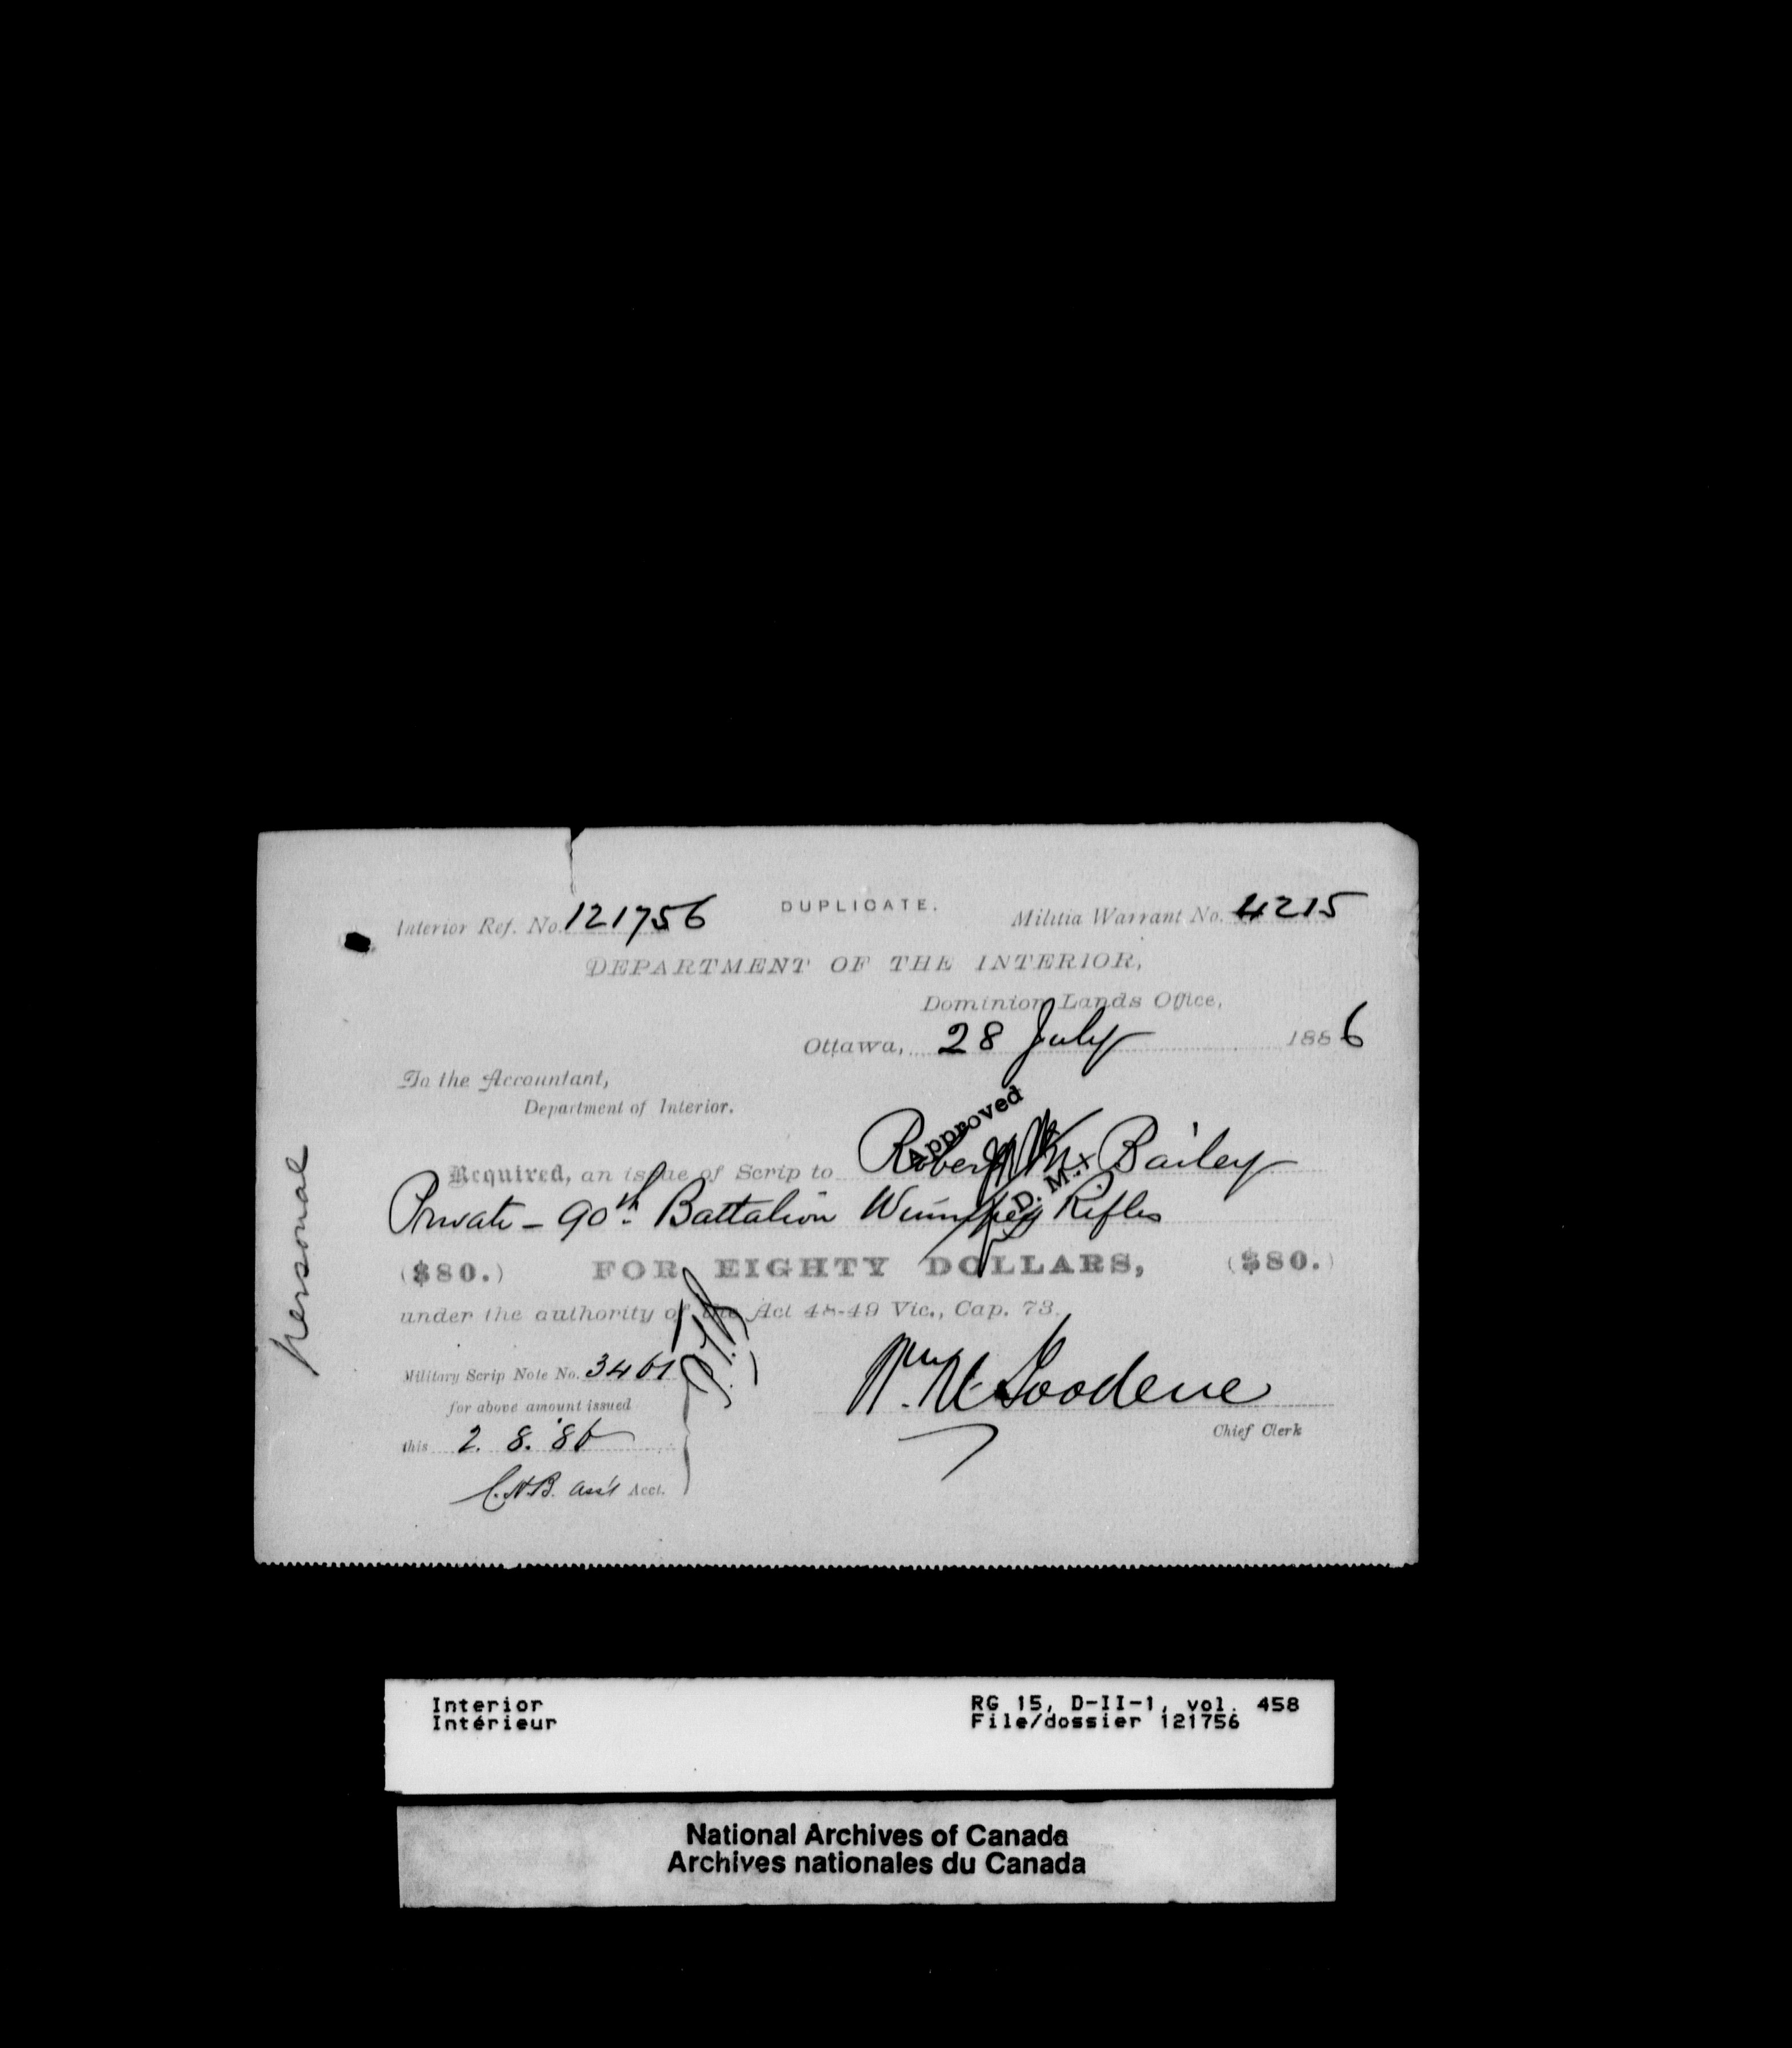 Interior Ref. No. 121756
DUPLICATE.
Militia Warrant No. 4215
DEPARTMENT OF THE INTERIOR,
Dominion Lands Office,
Ottawa, 28 July 1886
To the Accountant,
Department of Interior.
Approved
Required, an issue of Scrip to Robert Bailey
D. M.
Private - 90th Battalion Winnipeg Rifles
($80.) FOR EIGHTY DOLLARS, ($80.)
under the authority of the Act 48-49 Vic., Cap. 73.
personal
Military Scrip Note No. 3461
for above amount issued
this 2. 8. '86
C.H.B. Ass't Acct.
Wm M Goodeve
Chief Clerk
Interior
Intérieur
RG 15, D-II-1, vol. 458
File/dossier 121756
National Archives of Canada
Archives nationales du Canada